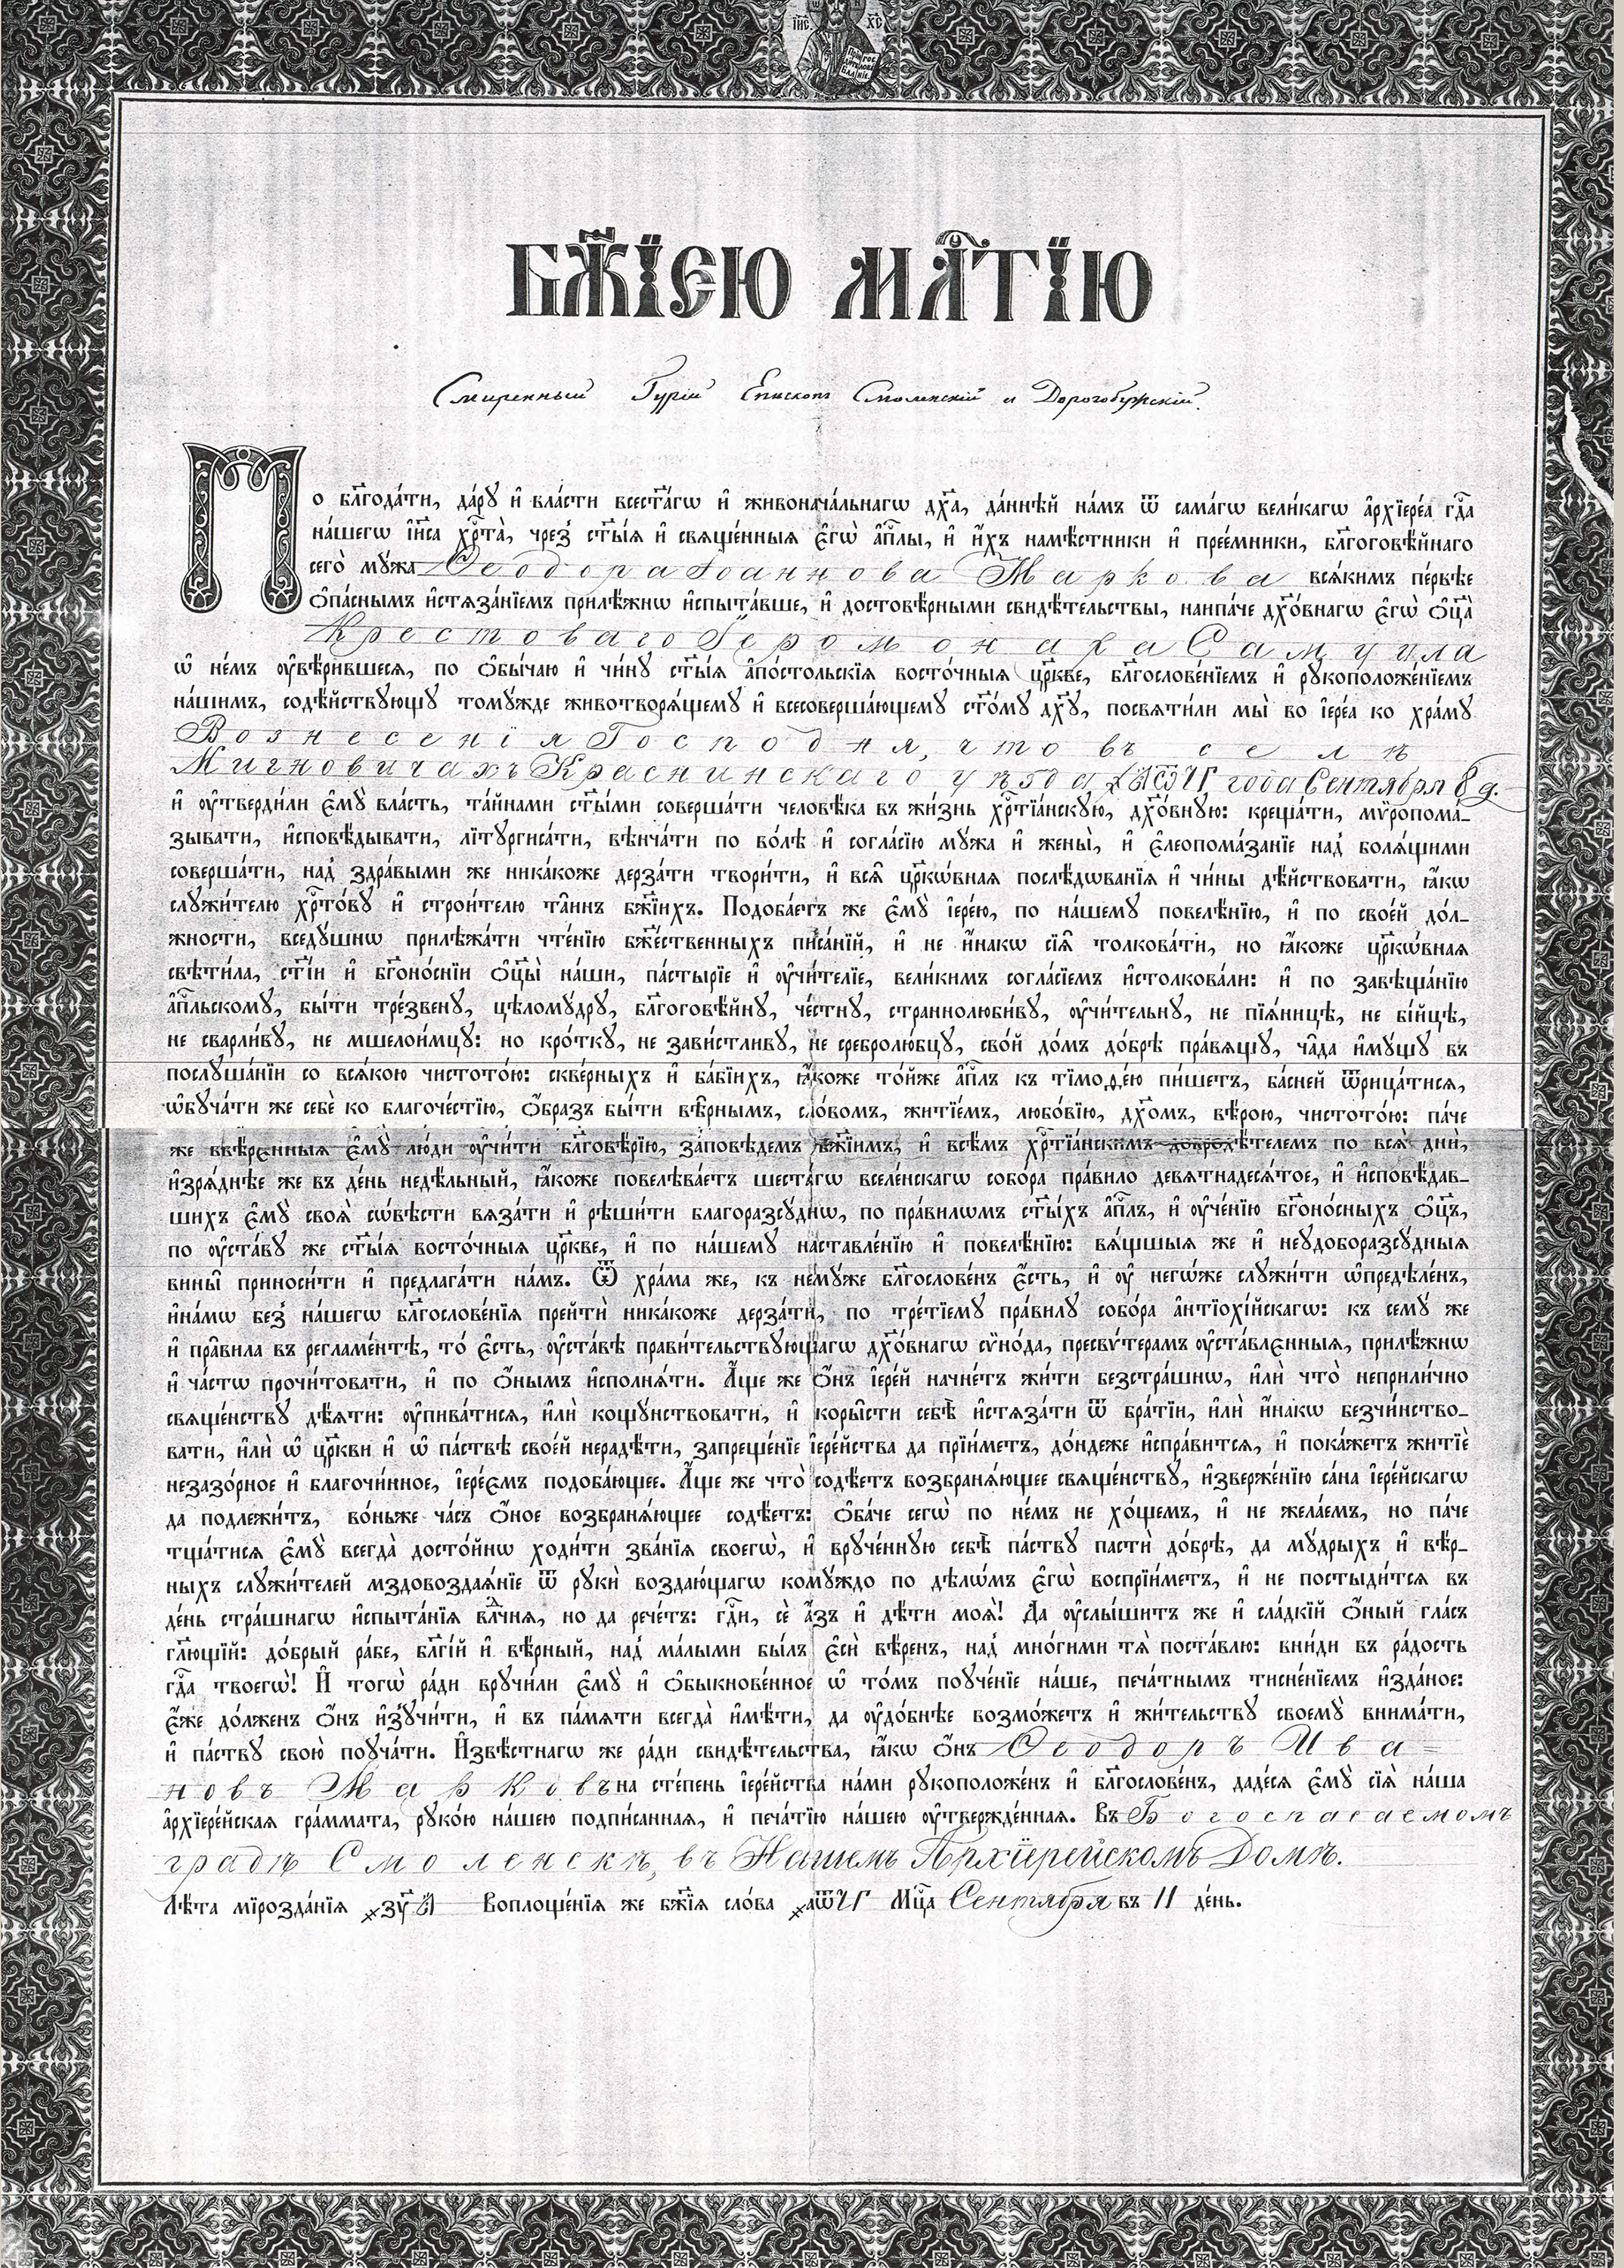 ІИ҃С ХС҃
БЖ҃ІЕЮ МЛ҃ТІЮ
Смиренный Гурій Епископъ Смоленскій и Дорогобужскій.
По бл҃года́ти, да́рꙋ и҆ вла́сти всест҃а́гѡ и҆ живонача́льнагѡ дх҃а, да́ннѣй на́мъ ѿ сама́гѡ вели́кагѡ а҆рхїере́а гдⷭ҇а
на́шегѡ і҆и҃са хрⷭ҇та̀, чрез̾ ст҃ы́ѧ и҆ свѧще́нныѧ є҆гѡ̀ а҆пⷭ҇лы, и҆ и҆́хъ намѣ́стники и҆ прее́мники, бл҃гоговѣ́йнаго
сего̀ мꙋ́жа Ѳеодора Іоаннова Маркова всѧ́кимъ пе́рвѣе
ѻ҆па́снымъ и҆стѧза́нїемъ прилѣ́жнѡ и҆спыта́вше, и҆ достовѣ́рными свидѣ́тельствы, наипа́че дх҃о́внагѡ є҆гѡ̀ ѻ҆ц҃а̀
Крестоваго Іеромонаха Самуила
ѡ҆ не́мъ ᲂу҆вѣ́рившесѧ, по ѻ҆бы́чаю и҆ чи́нꙋ ст҃ы́ѧ а҆по́стольскїѧ восто́чныѧ цр҃кве, бл҃гослове́нїемъ и҆ рꙋкоположе́нїемъ
на́шимъ, содѣ́йствꙋющꙋ томꙋ́жде животворѧ́щемꙋ и҆ всесоверша́ющемꙋ ст҃о́мꙋ дх҃ꙋ, посвѧти́ли мы̀ во і҆ере́а ко хра́мꙋ
Вознесенія Господня, что въ селѣ
Мигновичахъ Краснинскаго уѣзда ҂аѿчг года Сентября 8 д.
и҆ ᲂу҆тверди́ли є҆мꙋ̀ вла́сть, та́йнами ст҃ы́ми соверша́ти человѣ́ка въ жи́знь хрⷭ҇тїа́нскꙋю, дх҃о́внꙋю: креща́ти, мѵ̈ропома́-
зывати, и҆сповѣ́дывати, лїтꙋргиса́ти, вѣнча́ти по во́лѣ и҆ согла́сїю мꙋ́жа и҆ жены̀, и҆ є҆леопома́занїе над̾ болѧ́щими
соверша́ти, над̾ здра́выми же ника́коже дерза́ти твори́ти, и҆ всѧ̑ цр҃кѡ́внаѧ послѣ́дѡванїѧ и҆ чи́ны дѣ́йствовати, ꙗ҆́кѡ
слꙋжи́телю хрⷭ҇то́вꙋ и҆ строи́телю та̑инъ бж҃їихъ. Подоба́етъ же є҆мꙋ̀ і҆ере́ю, по на́шемꙋ повелѣ́нїю, и҆ по свое́й до́л-
жности, вседꙋ́шнѡ прилѣжа́ти чте́нїю бж҃е́ственныхъ писа́нїй, и҆ не и҆́накѡ сїѧ̑ толкова́ти, но ꙗ҆́коже цр҃кѡ́внаѧ
свѣти́ла, ст҃і́и и҆ бг҃оно́снїи ѻ҆ц҃ы̀ на́ши, па́стырїе и҆ ᲂу҆чи́телїе, вели́кимъ согла́сїемъ и҆столкова́ли: и҆ по завѣща́нїю
а҆пⷭ҇льскомꙋ, бы́ти тре́звенꙋ, цѣломꙋ́дрꙋ, бл҃гоговѣ́йнꙋ, че́стнꙋ, страннолюби́вꙋ, ᲂу҆чи́тельнꙋ, не пїѧ́ницѣ, не бі́йцѣ,
не сварли́вꙋ, не мшелои́мцꙋ: но кро́ткꙋ, не зави́стливꙋ, не сребролю́бцꙋ, сво́й до́мъ до́брѣ пра́вѧщꙋ, ча̑да и҆мꙋ́щꙋ въ
послꙋша́нїи со всѧ́кою чистото́ю: скве́рныхъ и҆ ба́бїихъ, ꙗ҆́коже то́йже а҆пⷭ҇лъ къ тїмоѳе́ю пи́шетъ, ба́сней ѿрица́тисѧ,
ѡ҆бꙋча́ти же себѐ ко благоче́стїю, ѻ҆́бразъ бы́ти вѣ̑рнымъ, сло́вомъ, житїе́мъ, любо́вїю, дх҃омъ, вѣ́рою, чистото́ю: па́че
же ввѣ́рєнныѧ є҆мꙋ̀ лю́ди ᲂу҆чи́ти бл҃говѣ́рїю, за́повѣдемъ бж҃їимъ, и҆ всѣ́мъ хрⷭ҇тїа́нскимъ добродѣ́телемъ по всѧ̑ дни̑,
и҆зрѧ́днѣе же въ де́нь недѣ́льный, ꙗ҆́коже повелѣва́етъ шеста́гѡ вселе́нскагѡ собо́ра пра́вило девѧтнадесѧ́тое, и҆ и҆сповѣ́дав-
шихъ є҆мꙋ̀ своѧ̑ сѡ́вѣсти вѧза́ти и҆ рѣши́ти благоразсꙋ́днѡ, по пра́вилѡмъ ст҃ы́хъ а҆пⷭ҇лъ, и҆ ᲂу҆че́нїю бг҃оно́сныхъ ѻ҆ц҃ъ,
по ᲂу҆ста́вꙋ же ст҃ы́ѧ восто́чныѧ цр҃кве, и҆ по на́шемꙋ наставле́нїю и҆ повелѣ́нїю: вѧ́щшыѧ же и҆ неꙋдоборазсꙋ́дныѧ
вины̑ приноси́ти и҆ предлага́ти на́мъ. Ѿ хра́ма же, къ немꙋ́же бл҃гослове́нъ є҆́сть, и҆ ᲂу҆ негѡ́же слꙋжи́ти ѡ҆предѣле́нъ,
и҆на́мѡ без̾ на́шегѡ бл҃гослове́нїѧ прейтѝ ника́коже дерза́ти, по тре́тїемꙋ пра́вилꙋ собо́ра а҆нтїохі́йскагѡ: къ семꙋ́ же
и҆ пра̑вила въ регламе́нтѣ, то́ є҆сть, ᲂу҆ста́вѣ прави́тельствꙋющагѡ дх҃о́внагѡ сѵно́да, пресвѵ́терамъ ᲂу҆ста́влєнныѧ, прилѣ́жнѡ
и҆ ча́стѡ прочи́товати, и҆ по ѻ҆́нымъ и҆сполнѧ́ти. А҆́ще же ѻ҆́нъ і҆ере́й начне́тъ жи́ти безстра́шнѡ, и҆лѝ что̀ неприли́чно
свѧще́нствꙋ дѣ́ѧти: ᲂу҆пива́тисѧ, и҆лѝ кощꙋ́нствовати, и҆ коры̑сти себѣ̀ и҆стѧза́ти ѿ бра́тїи, и҆лѝ и҆́накѡ безчи́нство-
вати, и҆лѝ ѡ҆ цр҃кви и҆ ѡ҆ па́ствѣ свое́й нерадѣ́ти, запреще́нїе і҆ере́йства да прїи́метъ, до́ндеже и҆спра́витсѧ, и҆ пока́жетъ житїѐ
незазо́рное и҆ благочи́нное, і҆ере́ємъ подоба́ющее. А҆́ще же что̀ содѣ́етъ возбранѧ́ющее свѧще́нствꙋ, и҆зверже́нїю са́на і҆ере́йскагѡ
да подлежи́тъ, во́ньже ча́съ ѻ҆́ное возбранѧ́ющее содѣ́етъ: ѻ҆ба́че сегѡ̀ по не́мъ не хо́щемъ, и҆ не жела́емъ, но па́че
тща́тисѧ є҆мꙋ̀ всегда̀ досто́йнѡ ходи́ти зва́нїѧ своегѡ̀, и҆ врꙋче́ннꙋю себѣ̀ па́ствꙋ пастѝ до́брѣ, да мꙋ́дрыхъ и҆ вѣ́р-
ныхъ слꙋжи́телей мздовоздаѧ́нїе ѿ рꙋкѝ воздаю́щагѡ комꙋ́ждо по дѣлѡ́мъ є҆гѡ̀ воспрїи́метъ, и҆ не постыди́тсѧ въ
де́нь стра́шнагѡ и҆спыта́нїѧ влⷣчнѧ, но да рече́тъ: гдⷭ҇и, сѐ а҆́зъ и҆ дѣ́ти моѧ̑! Да ᲂу҆слы́шитъ же и҆ сла́дкїй ѻ҆́ный гла́съ
гл҃ющїй: до́брый ра́бе, бл҃гі́й и҆ вѣ́рный, над̾ ма́лыми бы́лъ є҆сѝ вѣ́ренъ, над̾ мно́гими тѧ̀ поста́влю: вни́ди въ ра́дость
гдⷭ҇а твоегѡ̀! И҆ тогѡ̀ ра́ди врꙋчи́ли є҆мꙋ̀ и҆ ѻ҆быкнове́нное ѡ҆ то́мъ поꙋче́нїе на́ше, печа́тнымъ тисне́нїемъ и҆зда́ное:
є҆́же до́лженъ ѻ҆́нъ и҆зꙋчи́ти, и҆ въ па́мѧти всегда̀ и҆мѣ́ти, да ᲂу҆до́бнѣе возмо́жетъ и҆ жи́тельствꙋ своемꙋ̀ внима́ти,
и҆ па́ствꙋ свою̀ поꙋча́ти. И҆звѣ́стнагѡ же ра́ди свидѣ́тельства, ꙗ҆́кѡ ѻ҆́нъ Ѳеодоръ Ива=
новъ Марковъ на сте́пень і҆ере́йства на́ми рꙋкоположе́нъ и҆ бл҃гослове́нъ, даде́сѧ є҆мꙋ̀ сїѧ̀ на́ша
а҆рхїере́йскаѧ гра́ммата, рꙋко́ю на́шею подпи́саннаѧ, и҆ печа́тїю на́шею ᲂу҆твержде́ннаѧ. Въ Богоспасаемомъ
градѣ Смоленскѣ, въ Нашемъ Архіерейскомъ Домѣ.
Лѣ́та мїрозда́нїѧ ҂зꙋ҃ Воплоще́нїѧ же бж҃їѧ сло́ва ҂аѿчг Мцⷭ҇а Сентября въ 11 де́нь.